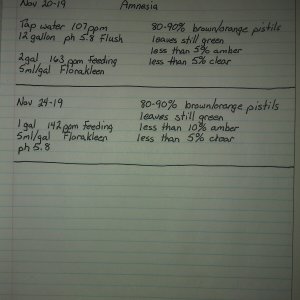 Nov 20-19 Amnesia
Tap water 107ppm 80-90% brown/orange pistils
12 gallon ph 5.8 Flush leaves still green
less than 5% amber
2gal 163ppm feeding less than 5% clear
5ml/gal Florakleen
Nov 24-19 80-90% brown/orange pistils
leaves still green
1 gal 142ppm feeding less than 10% amber
5ml/gal Florakleen less than 5% clear
ph 5.8